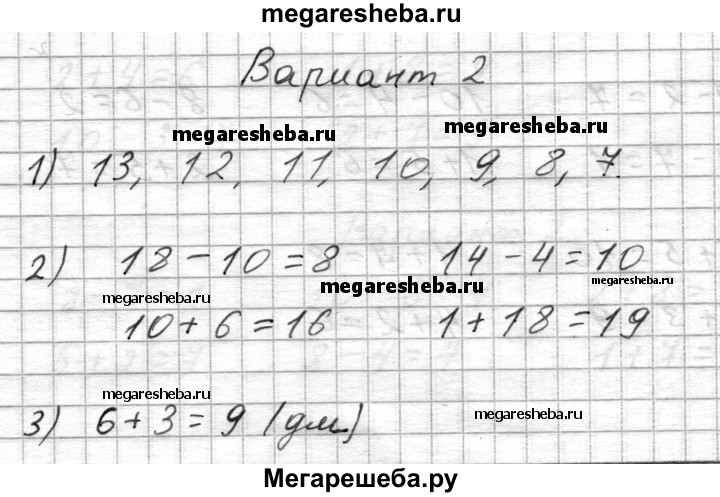 megaresheba.ru
Вариант 2
megaresheba.ru megaresheba.ru
1) 13, 12, 11, 10, 9, 8, 7.
2) 18 - 10 = 8 14 - 4 = 10
megaresheba.ru megaresheba.ru megaresheba.ru
10 + 6 = 16 1 + 18 = 19
megaresheba.ru megaresheba.ru
3) 6 + 3 = 9 (дм.)
Мегарешеба.ру